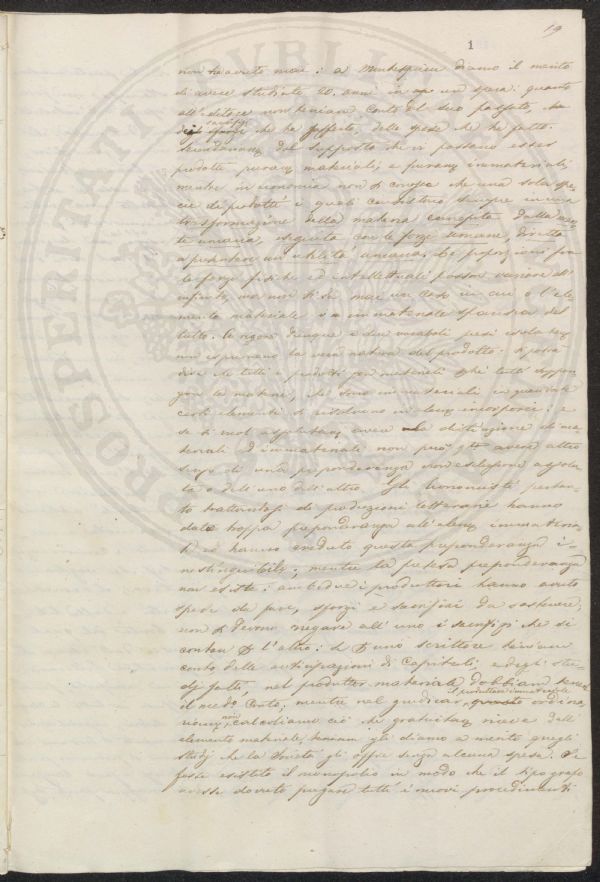 19
1
non ha avuto mai: a Montesquieu diamo il merito
di avere studiato 20. anni in un opera: quanto
all'editore non teniamo conto del suo passato, che
dei sacrifizj che ha sofferto, delle spese che ha fatto.
Secondariam dal supposto che vi possano esser
prodotti puram materiali, e puram immateriali,
mentre in economia non si conosce che una sola spe
cie di prodotti i quali consistono sempre in una
trasformazione della materia concepita dalla men
te umana, eseguita con le forze umane, diretta
a presentare un utilità umana. Le proporzioni fra
le forze fisiche ed intellettuali possono variare all'
infinito, ma non si dà mai un caso in cui o l'ele
mento materiale o immateriale sparisca del
tutto. In rigore dunque i due vocaboli presi isolatam
non esprimono la vera natura del prodotto. Si potrà
dire che tutti i prodotti son materiali perchè tutti suppon
gono la materia, che sono immateriali in quanto che
certi elementi si risolvono in lavoro incorporei: e
se si vuol assolutam avere la distinzione di ma
teriali ed immateriali non può avere altro
senso di una preponderanza non esclusione assolu
ta o dell'uno all'altro. Gli Economisti pertan
to trattandosi di produzioni letterarie hanno
dato troppa preponderanza all'elem immateriale
ed hanno creduto questa preponderanza i=
nestinguibile; mentre la pretesa preponderanza
non esiste: ambedue i produttori hanno avuto
spese da fare, sforzi e sacrifizi da sostenere,
non si devono negare all'uno i sacrifizj che si
contan per l'altro: se per uno scrittore teniam
conto delle anticipazioni di Capitali e degli stu=
dj fatti, nel produttor materiale dobbiam tener
il med.o Conto; mentre nel giudicar il produttore immateriale ordina
riam non calcoliamo ciò che gratuitam riceve dall'
elemento materiale, teniam gli diamo a merito quegli
studj che la Società gli offre senza alcuna spesa. Se
fosse esistito il monopolio in modo che il tipografo
avesse dovuto pagare tutti i nuovi procedimenti